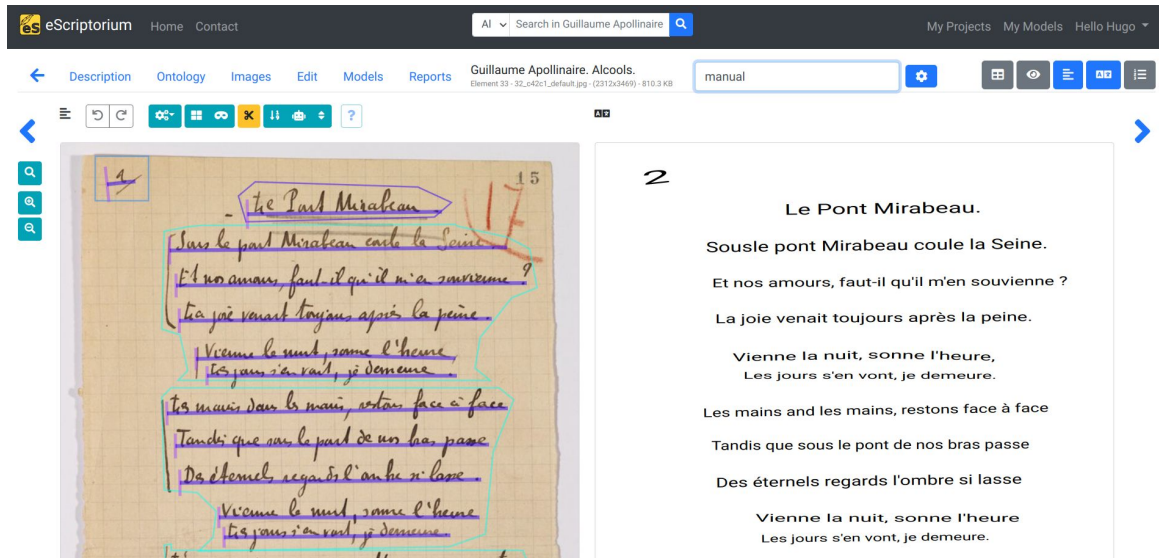 eS eScriptorium Home Contact Al Search in Guillaume Apollinaire My Projects My Models Hello Hugo
Description Ontology Images Edit Models Reports Guillaume Apollinaire. Alcools. manual
Element 33 - 32_c42c1_default.jpg - (2312x3469) - 810.3 KB
?
15
17
Le Pont Mirabeau
Sous le pont Mirabeau coule la Seine.
Et nos amours, faut-il qu'il m'en souvienne ?
La joie venait toujours après la peine.
Vienne la nuit, sonne l'heure,
Les jours s'en vont, je demeure.
Les mains dans les mains, restons face à face
Tandis que sous le pont de nos bras passe
Des éternels regards l'onde si lasse.
Vienne la nuit, sonne l'heure
Les jours s'en vont, je demeure.
2
Le Pont Mirabeau.
Sousle pont Mirabeau coule la Seine.
Et nos amours, faut-il qu'il m'en souvienne ?
La joie venait toujours après la peine.
Vienne la nuit, sonne l'heure,
Les jours s'en vont, je demeure.
Les mains and les mains, restons face à face
Tandis que sous le pont de nos bras passe
Des éternels regards l'ombre si lasse
Vienne la nuit, sonne l'heure
Les jours s'en vont, je demeure.